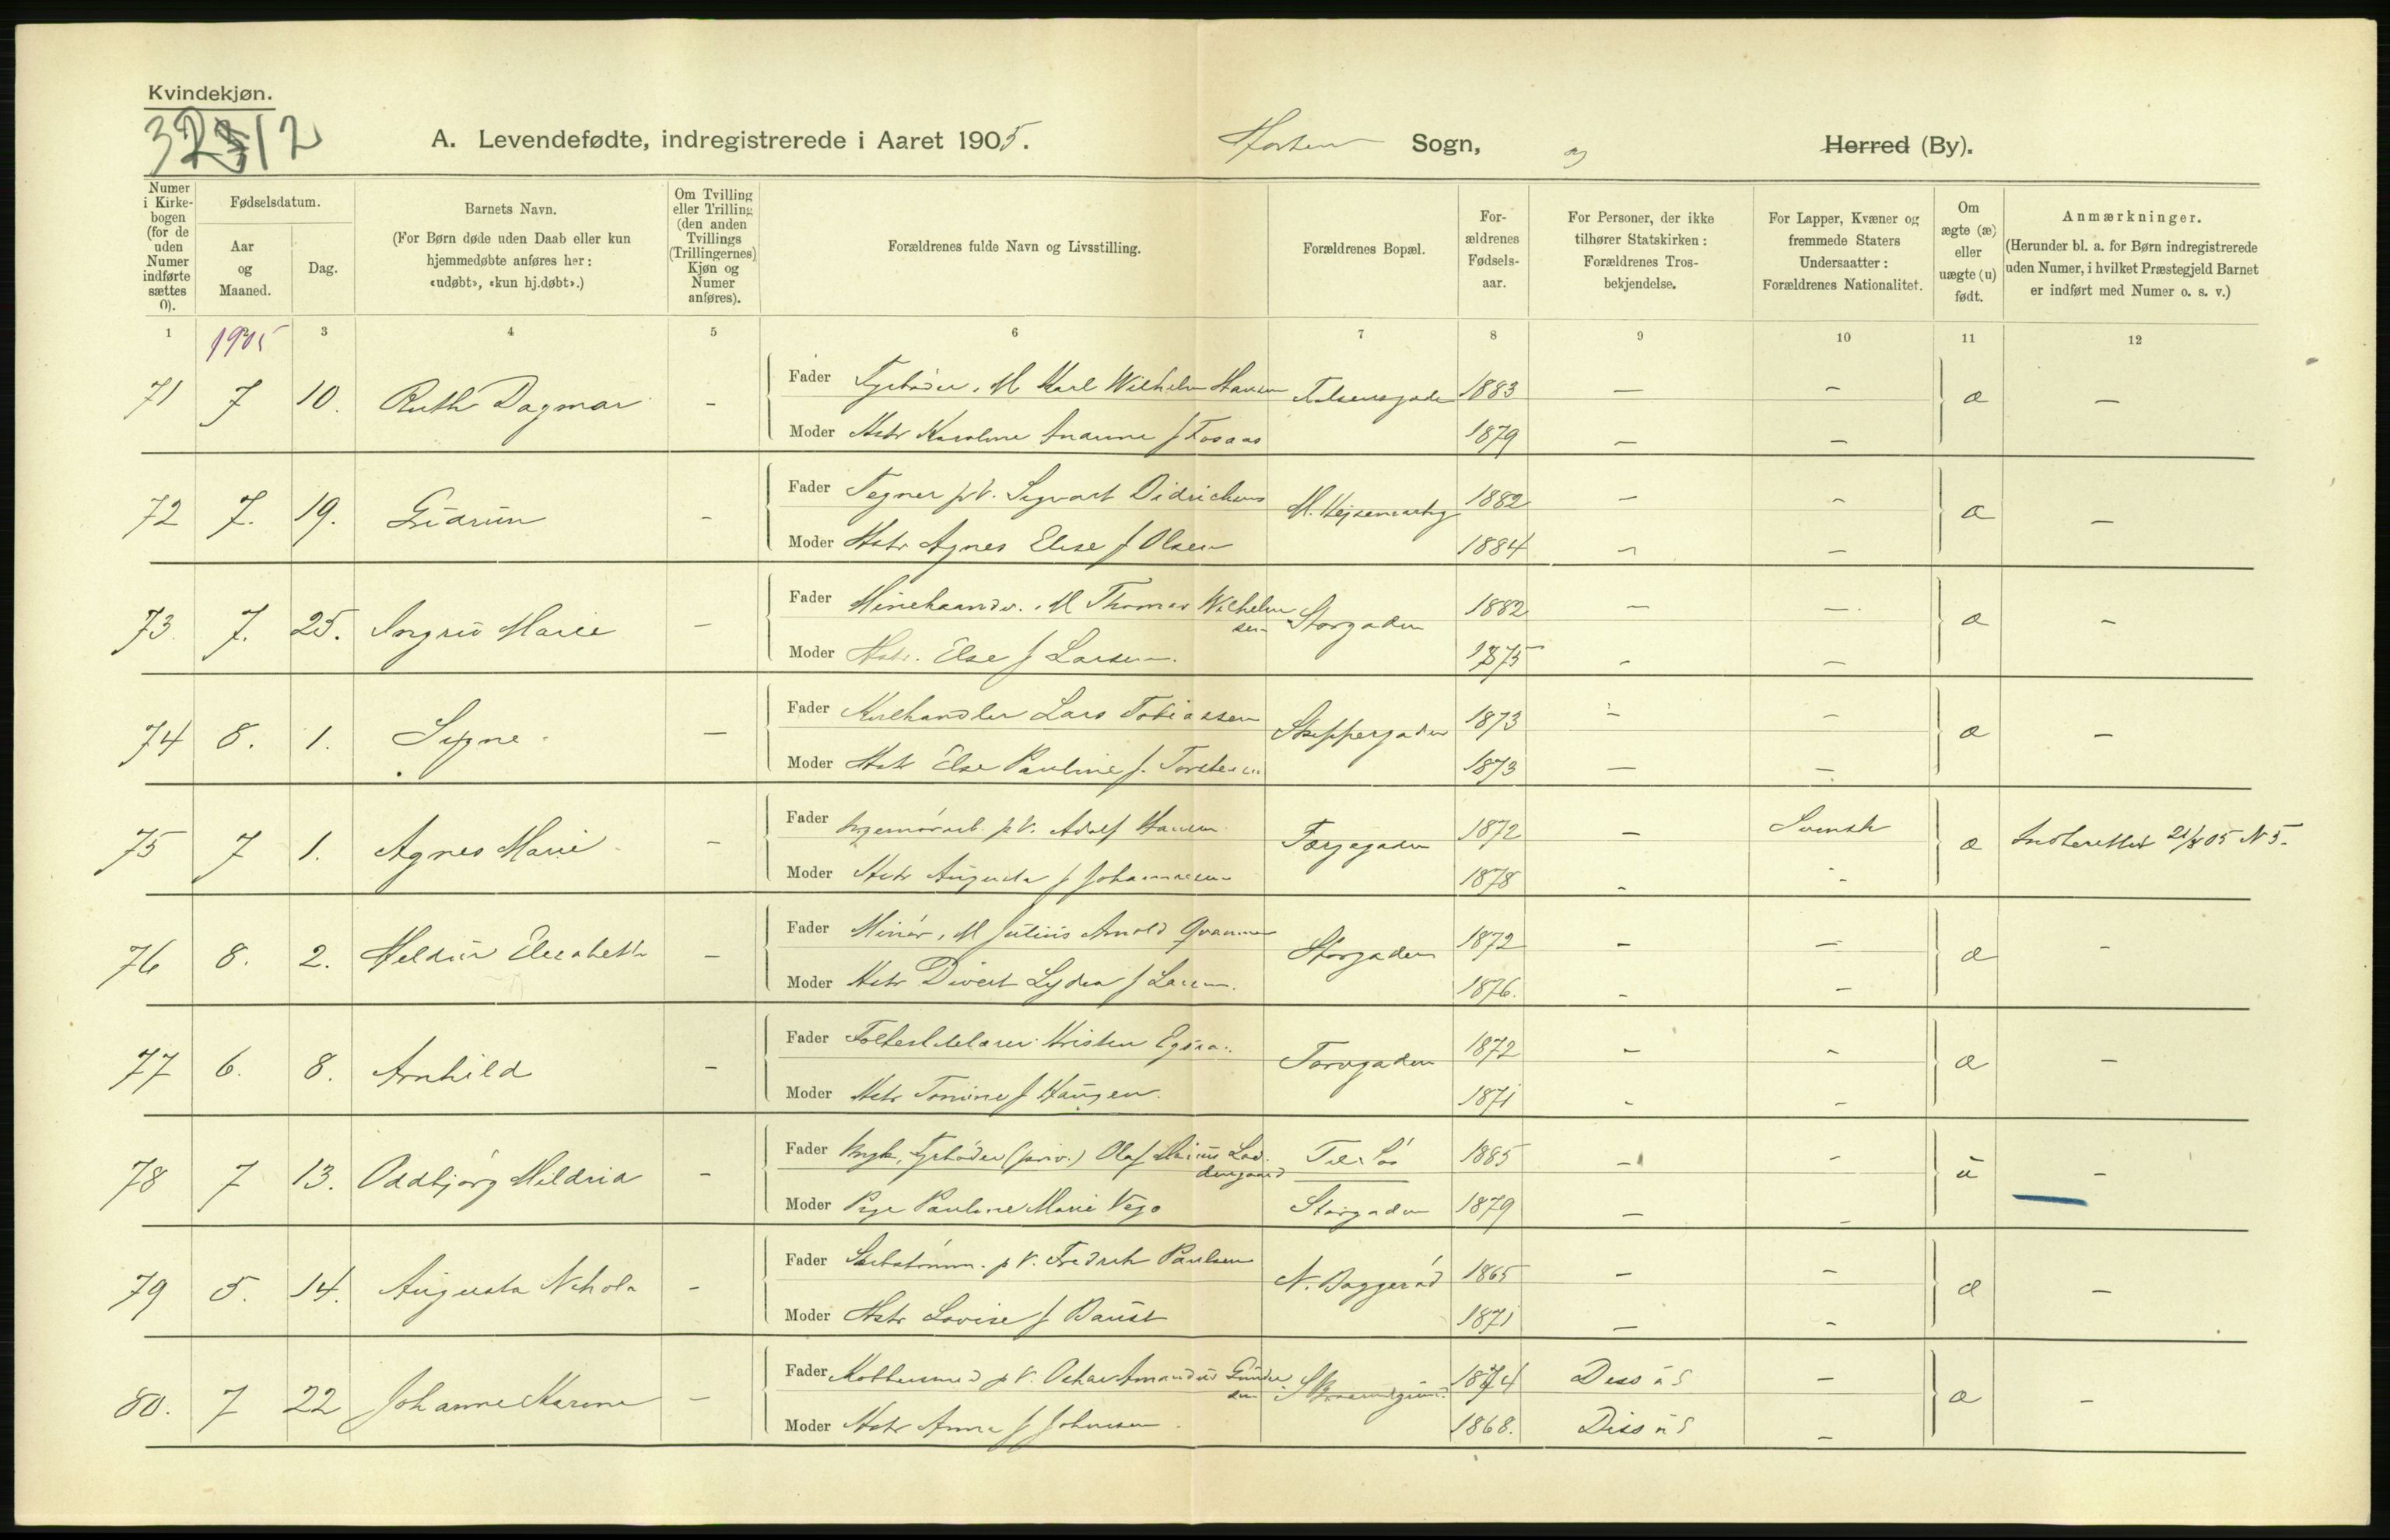 Kvindekjøn.
A. Levendefødte, indregistrerede i Aaret 1905.
Horten Sogn, og Herred (By).
Numer i Kirkebogen (for de uden Numer indførte sættes 0).
Fødselsdatum.
Aar og Maaned.
Dag.
Barnets Navn.
(For Børn døde uden Daab eller kun hjemmedøbte anføres her: «udøbt», «kun hj.døbt».)
Om Tvilling eller Trilling (den anden Tvillings (Trillingernes) Kjøn og Numer anføres).
Forældrenes fulde Navn og Livsstilling.
Forældrenes Bopæl.
For-ældrenes Fødsels-aar.
For Personer, der ikke tilhører Statskirken: Forældrenes Tros-bekjendelse.
For Lapper, Kvæner og fremmede Staters Undersaatter: Forældrenes Nationalitet.
Om ægte (æ) eller uægte (u) født.
Anmærkninger.
(Herunder bl. a. for Børn indregistrerede uden Numer, i hvilket Præstegjeld Barnet er indført med Numer o. s. v.)
1 3 4 5 6 7 8 9 10 11 12
1905
71 7 10. Ruth Dagmar - Fader Fyrbøder. M Karl Wilhelm Hansen 1883 — - æ —
Moder Hstr Karoline 1879 — —
72 7. 19. Gudrun - Fader Tegner p V. Sigvart Didrichsen 1882 - - æ —
Moder Hstr Agnes Elise f Olsen 1884 - —
73. 7. 25. Ingrid Marie - Fader Minehaandv. M Thomas Wilhelmsen Storgaden 1882 — — æ -
Moder Hstr. Else f Larsen. 1875 - —
74 8. 1. Signe. — Fader Lars Tobiassen Skippergaden 1873 - - æ -
Moder Hstr Else Pauline f. Torstensen 1873 — —
75 7 1. Agnes Marie - Fader p V. Adolf Hansen Færgegaden 1872 — Svensk æ 05 N 5.
Moder Hstr Augusta f Johannesen 1878 - -
76 8. 2. Heldur Elisabeth - Fader Minør, M Julius Arnold Storgaden 1872 - — æ -
Moder Hstr Lydia f Larsen. 1876. - —
77 6. 8. Arnhild - Fader Kristen Torvgaden 1872 - - æ —
Moder Hstr Tomine f Haugen. 1871 - -
78 7 13. Oddbjørg Hildria - Fader Ungk. Fyrbøder (priv.) Olaf Til Søs 1885 - - u -
Moder Pige Pauline Marie Vego Storgaden 1879 — -
79 5. 14. Augusta Nehola - Fader Skibstømm. p V. Fredrik Paulsen N. Baggerød 1865 - - æ —
Moder Hstr Lovise f Baust 1871 — -
80. 7 22 Johanne Marine - Fader Kobbersmed p V. Oskar Amandus Gundersen 1874 Diss — æ -
Moder Hstr Anna f Johnsen. 1868. Diss —